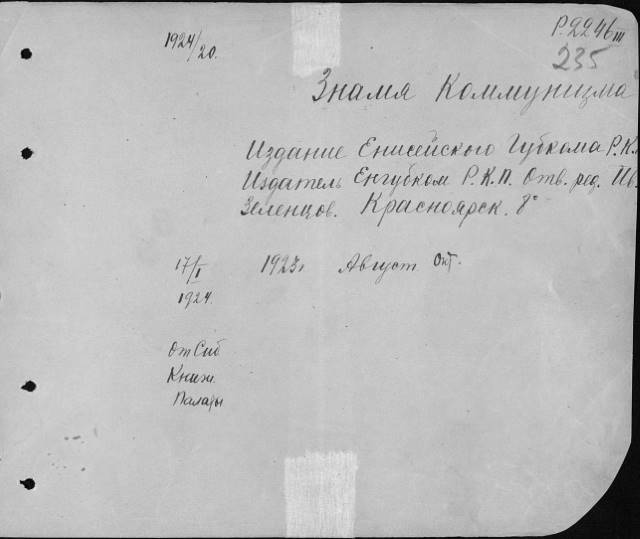 1924/20.
Р.2246 III
235
Знамя Коммунизма
Издание Енисейского Губкома Р.К.
Издатель Енгубком Р.К.П. Отв. ред. Ив.
Зеленцов. Красноярск. 8°
17/I 1923г Август Окт.
1924.
От Сиб
Книж.
Палаты